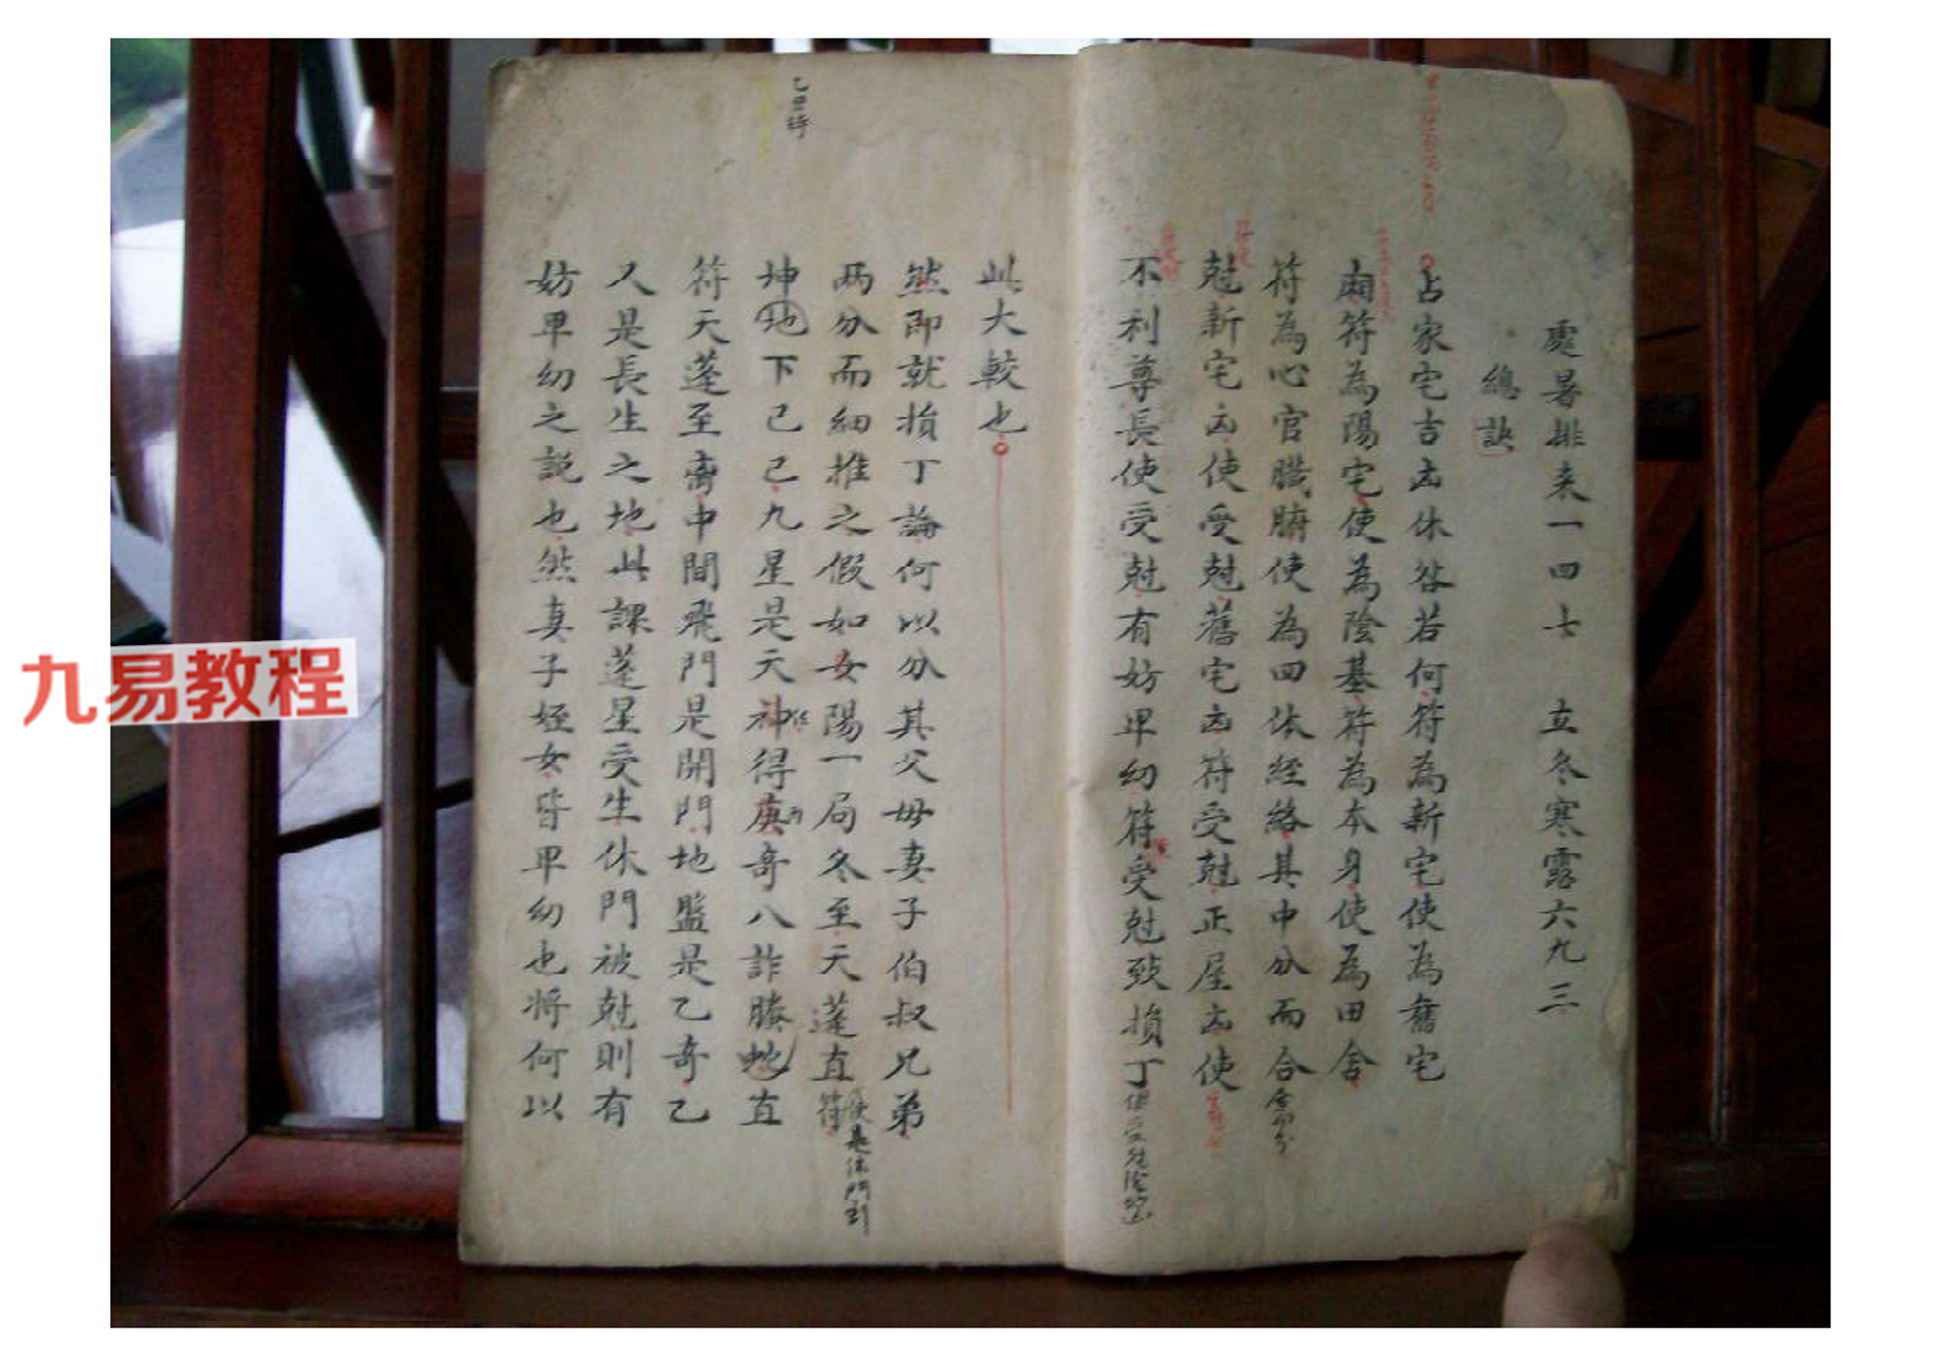 處暑排来一四七 立冬寒露六九三
總訣
占家宅吉凶休咎若何符為新宅使為舊宅
廂符為陽宅使為陰基符為本身使為田舍
符為心官臟腑使為四体經絡其中分而合
尅新宅凶使受尅舊宅凶符受尅正屋凶使
不利尊長使受尅有妨卑幼符受尅致損丁
此大較也
然即就損丁論何以分其父母妻子伯叔兄弟
兩分而細推之假如女陽一局冬至天蓬直符
使是休門到
坤地下己己九星是天神得庚奇八詐螣蛇直
乙丑符
符天蓬至齋中間飛門是開門地盤是乙奇乙
人是長生之地此課蓬星受生休門被尅則有
妨卑幼之説也然妻子姪女皆卑幼也將何以
九易教程